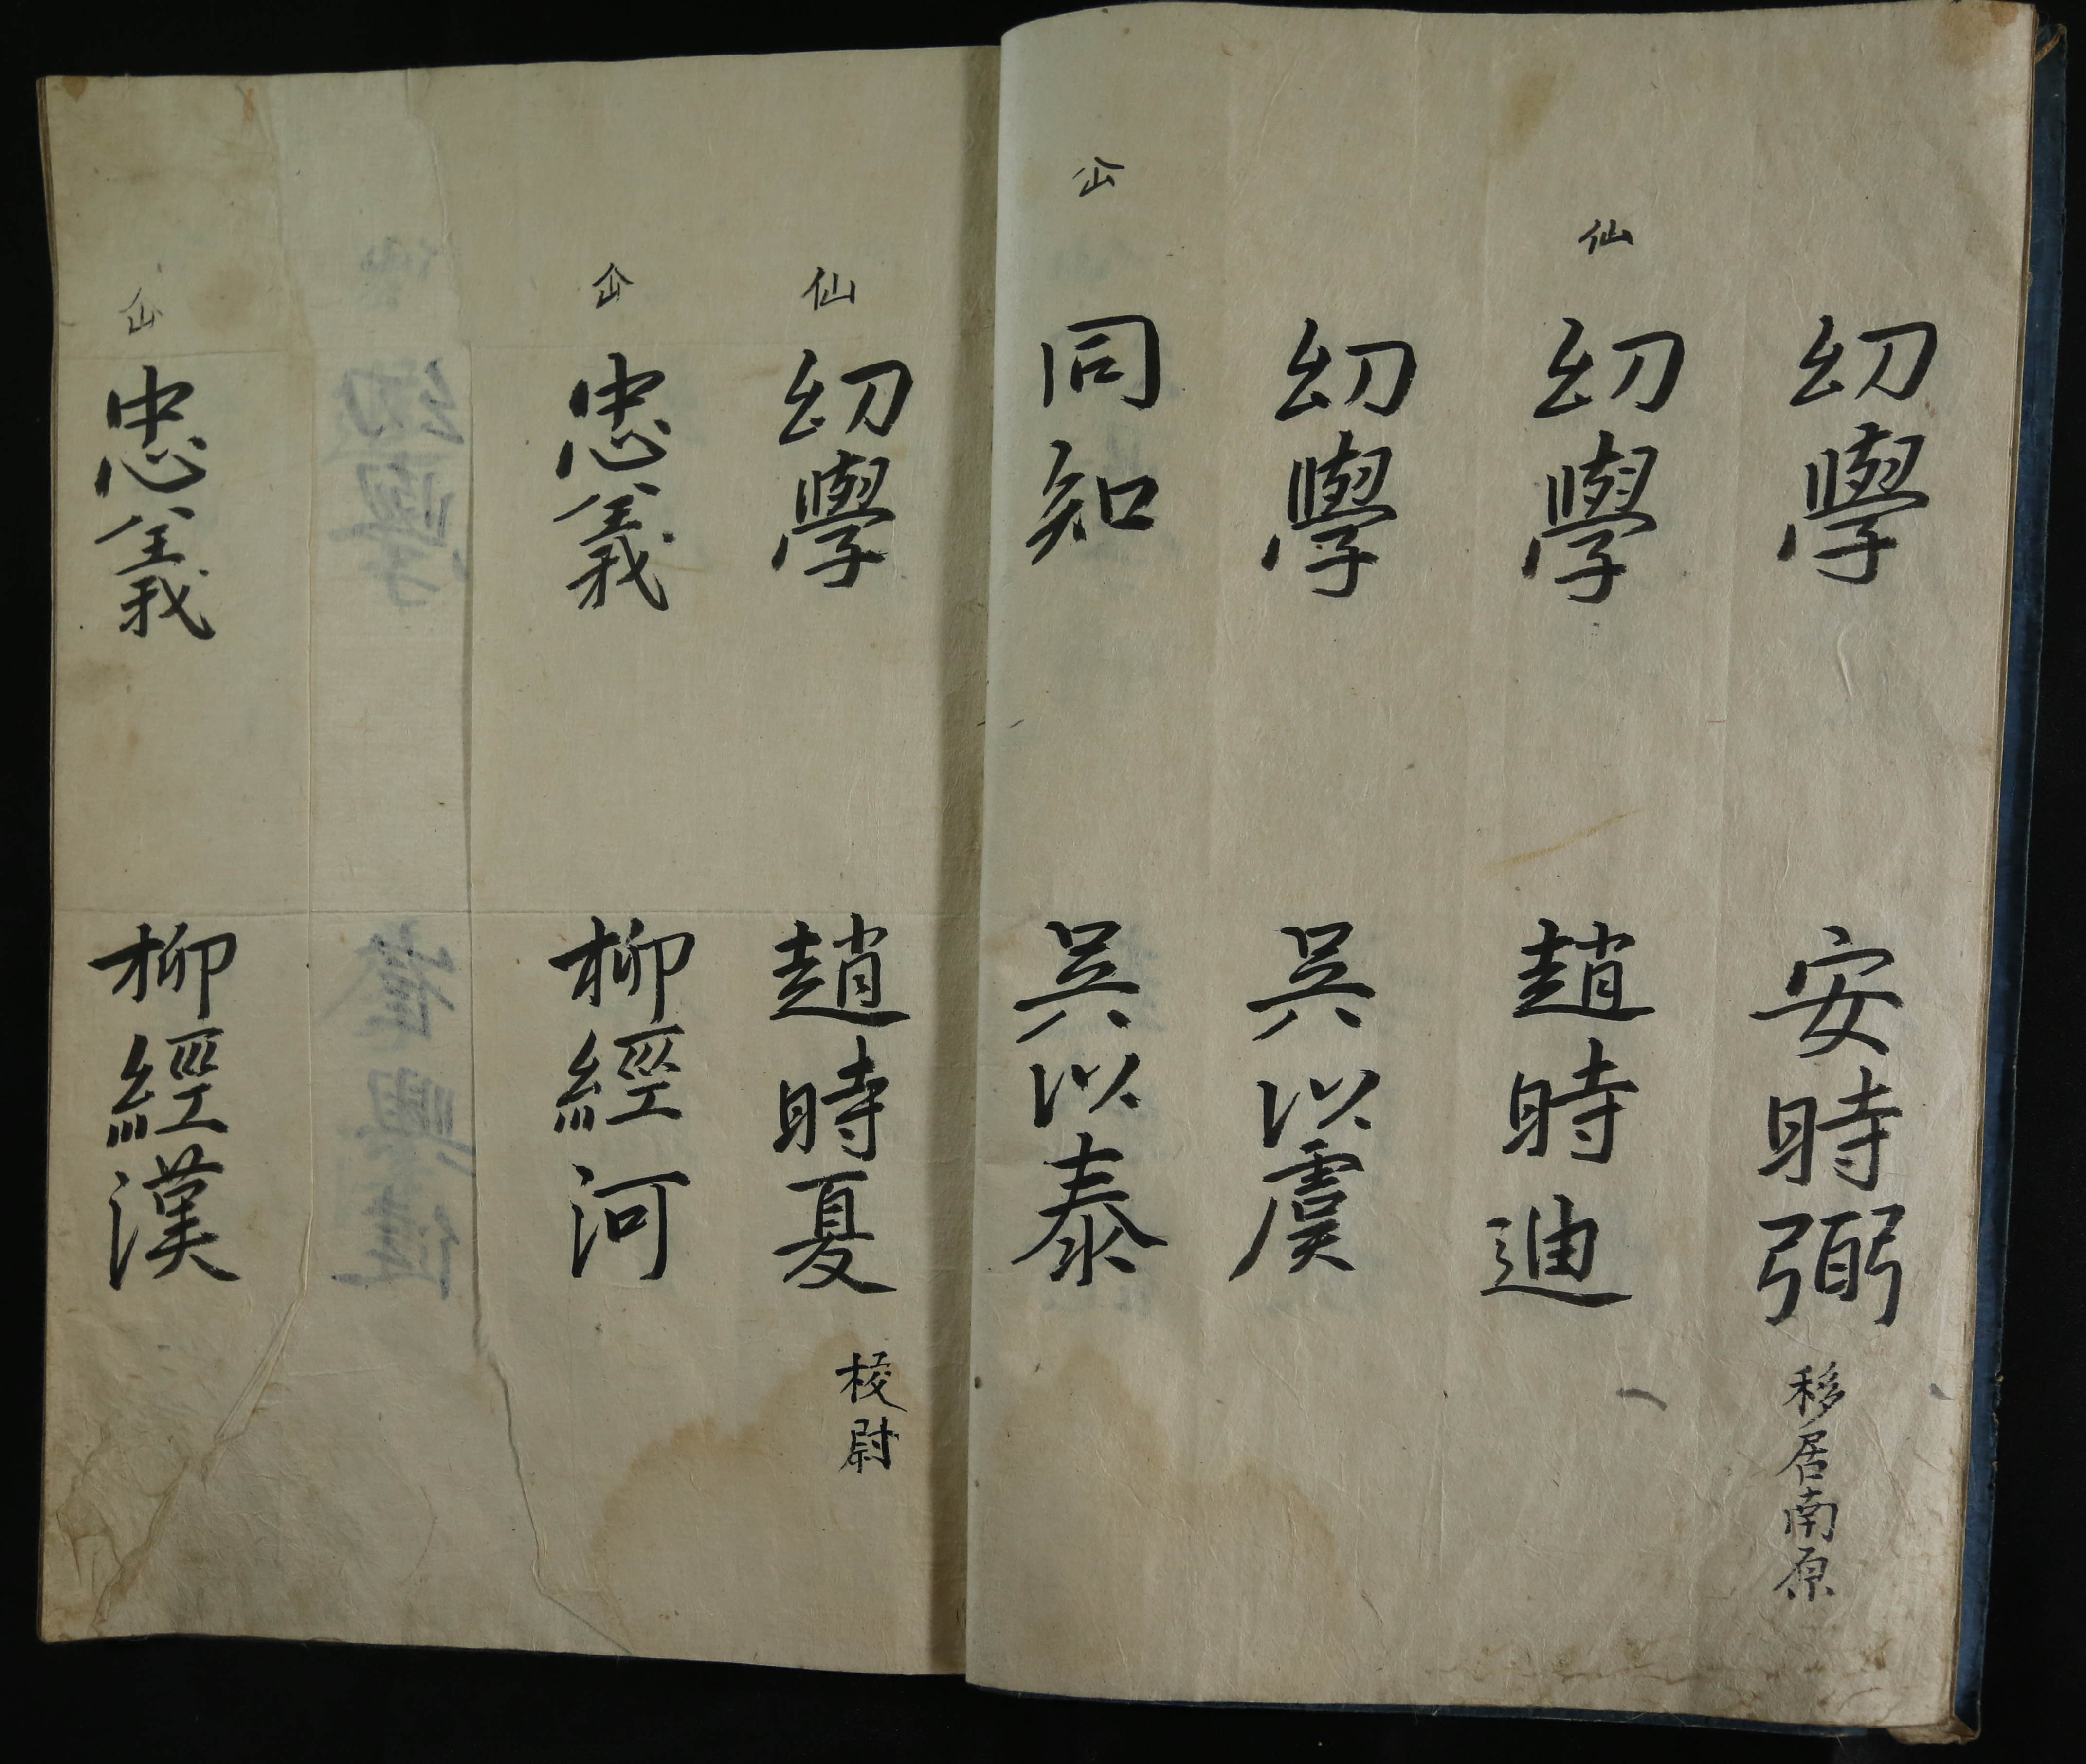 幼學 安時弼 移居南原
仙 幼學 趙時迪
幼學 吳以虞
仚 同知 吳以泰
仙 幼學 趙時夏 校尉
仚 忠義 柳經河
仚 忠義 柳經漢